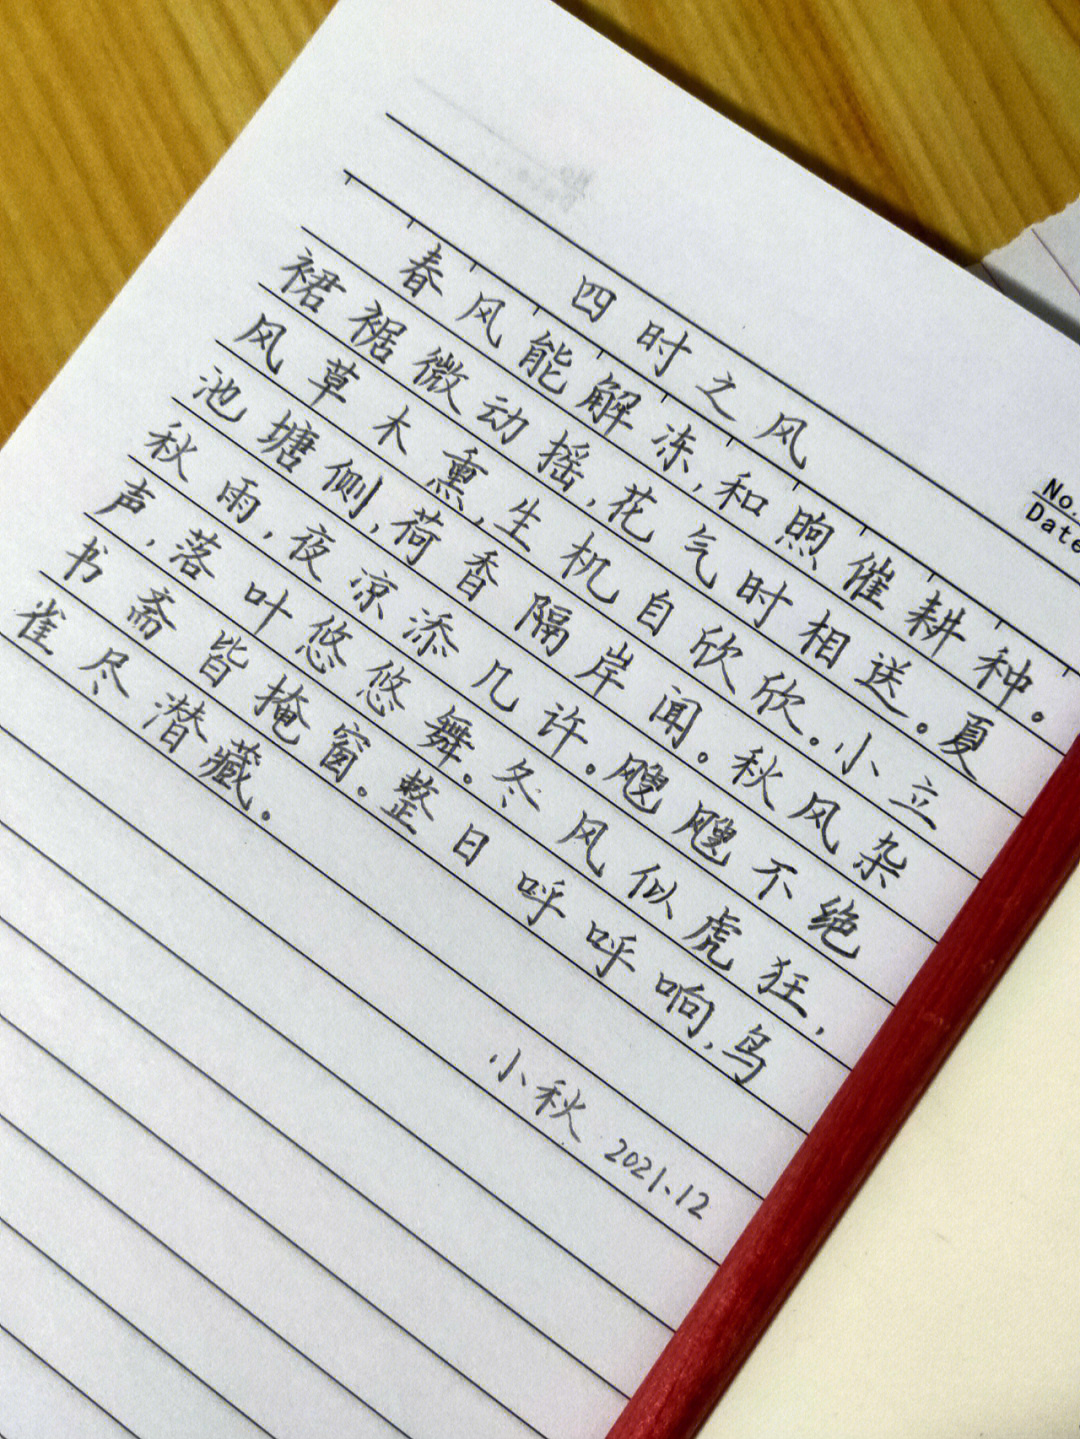 四时之风
春风能解冻,和煦催耕种。
裙裾微动摇,花气时相送。夏
风草木熏,生机自欣欣。小立
池塘侧,荷香隔岸闻。秋风杂
秋雨,夜凉添几许。飕飕不绝
声,落叶悠悠舞。冬风似虎狂,
书斋皆掩窗。整日呼呼响,鸟
雀尽潜藏。
小秋 2021.12
No.
Date